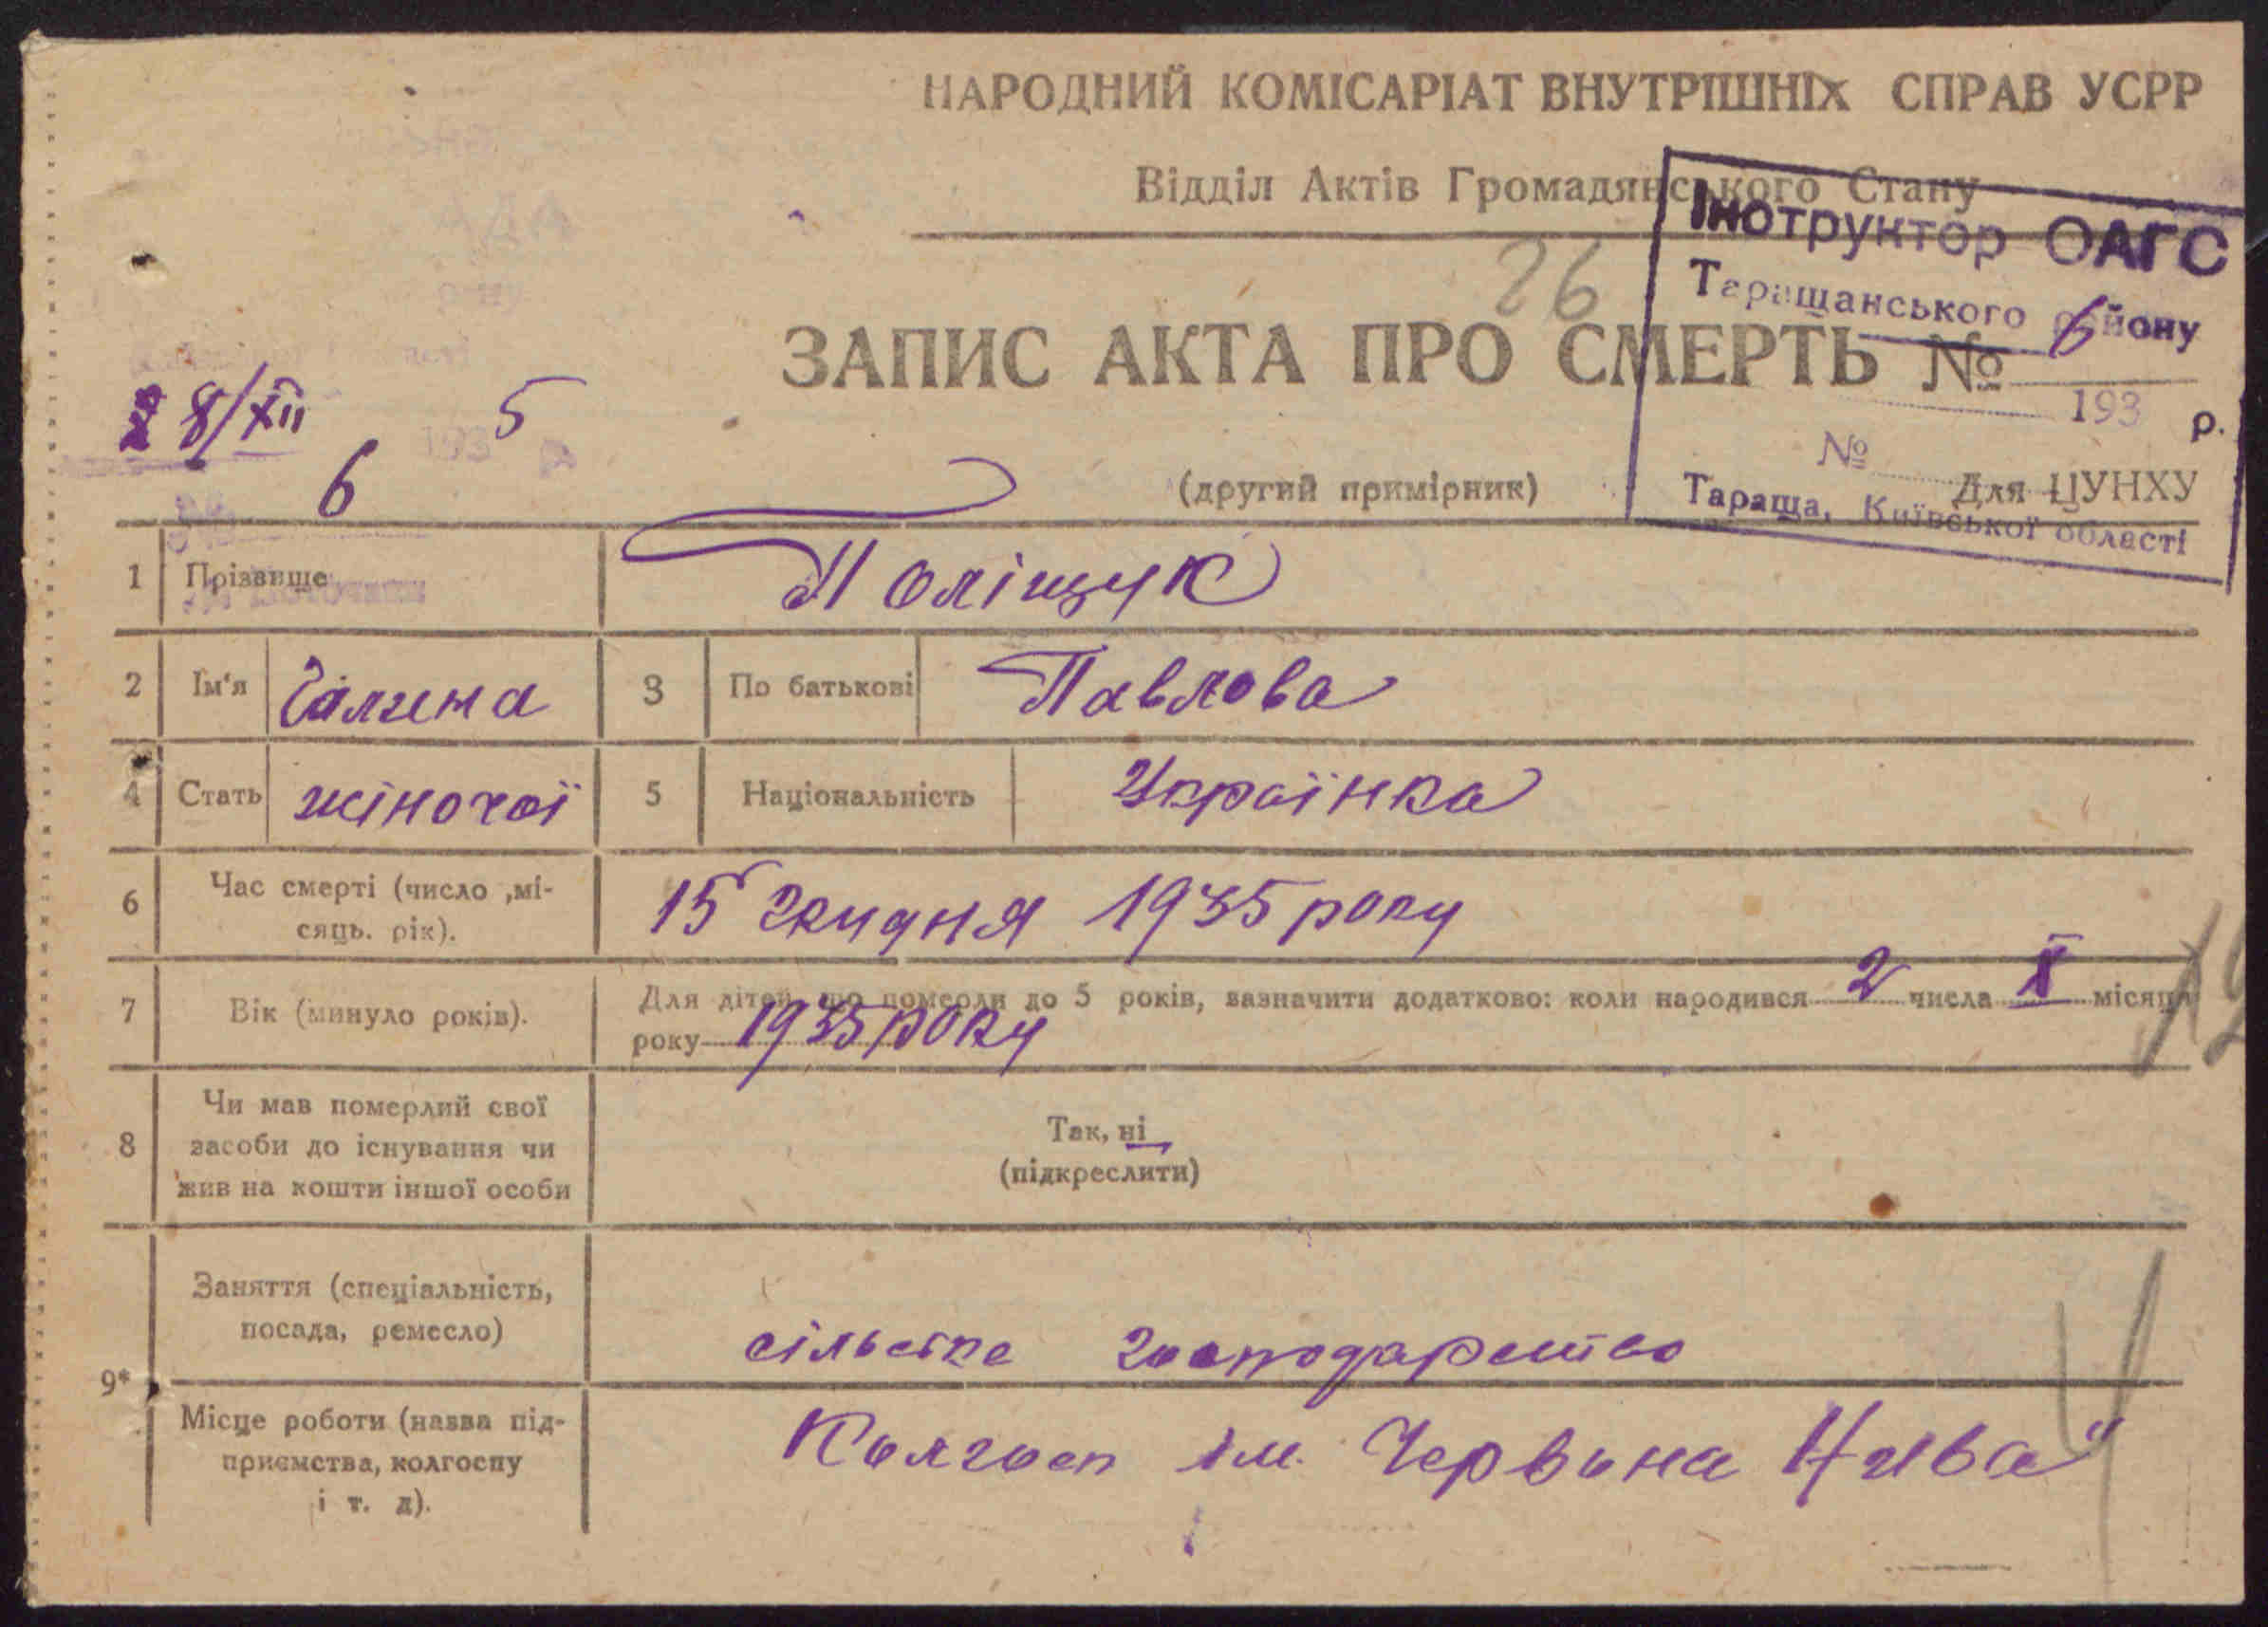 НАРОДНИЙ КОМІСАРІАТ ВНУТРІШНІХ СПРАВ УСРР
Відділ Актів Громадянського Стану
Інструктор ОАГС
Таращанського району
26
ЗАПИС АКТА ПРО СМЕРТЬ № 6
193 р.
8/XII 5
№
6
(другий примірник)
Для ЦУНХУ
Тараща, Київської області
1 Прізвище Поліщук
2 Ім'я Галина 3 По батькові Павлова
4 Стать жіночої 5 Національність Українка
6 Час смерті (число ,мі-
сяць. рік).
15 грудня 1935 року
7 Вік (минуло років).
Для дітей, що померли до 5 років, зазначити додатково: коли народився 2 числа X місяця
року 1935 року
8 Чи мав померлий свої
засоби до існування чи
жив на кошти іншої особи
Так, ні
(підкреслити)
9*
Заняття (спеціальність,
посада, ремесло)
сільське господарство
Місце роботи (назва під-
приємства, колгоспу
і т. д).
Колгосп ім. Червона Нива"